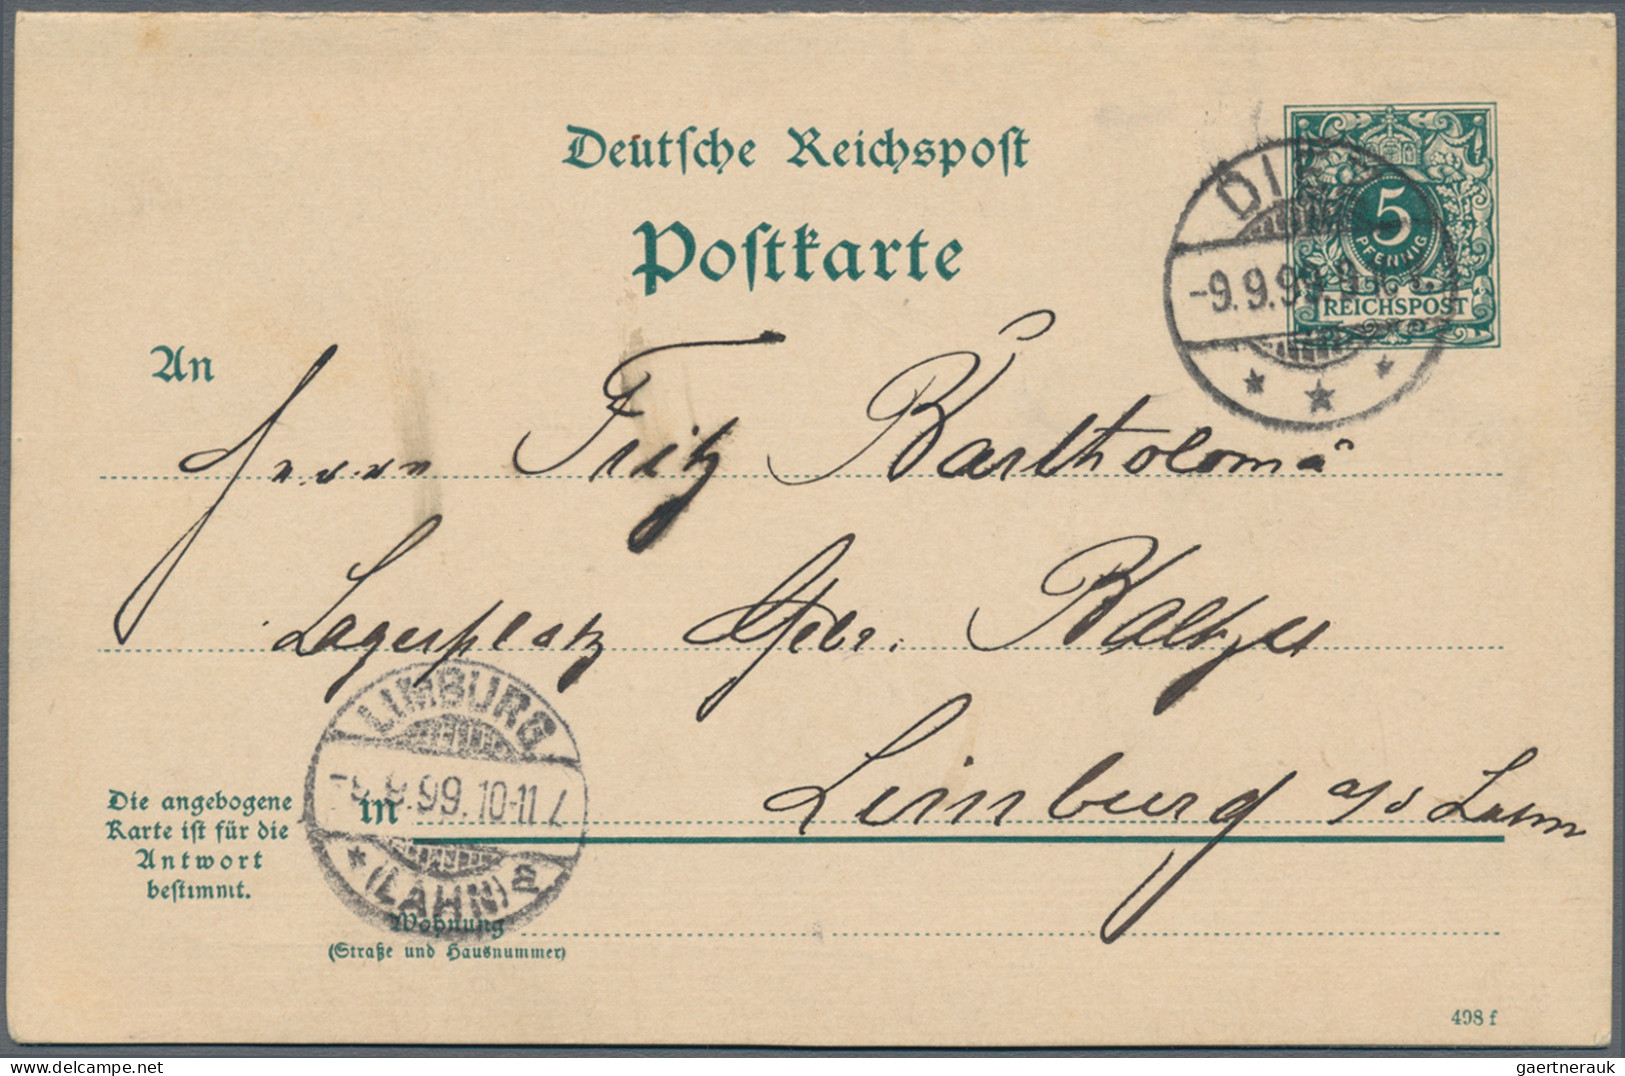 Deutsche Reichspost
Postkarte
5
PFENNIG
REICHSPOST
-9.9.99.
An
Herrn Fritz Bartholomä
Lagerplatz Gebr. Baltzer
LIMBURG
-9.9.99. 10-11
(LAHN) a
Limburg a/d Lahn
in
Die angebogene
Karte ist für die
Antwort
bestimmt.
Wohnung
(Straße und Hausnummer)
498 f
gaertnerauk